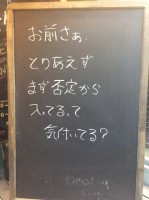 お前さぁ、
とりあえず
まず否定から
入ってるって
気付いてる?